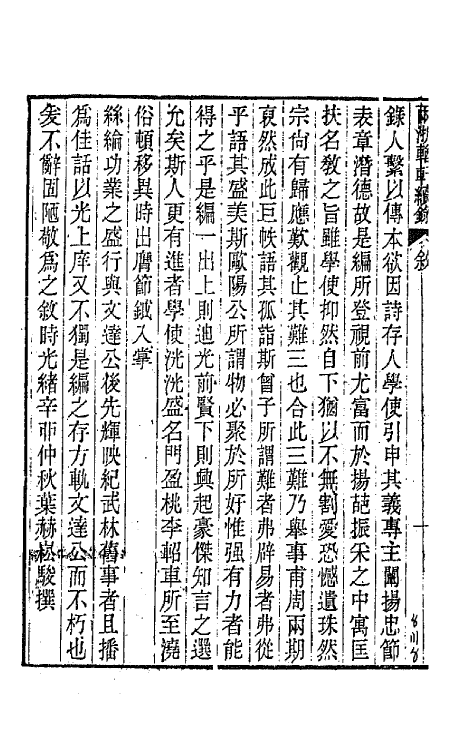 兩浙輶軒續錄 敘
錄人繫以傳本欲因詩存人學使引申其義專主闡揚忠節
表章潛德故是編所登視前尤富而於揚葩振采之中寓匡
扶名敎之旨雖學使抑然自下猶以不無割愛恐憾遺珠然
宗尙有歸應歎觀止其難三也合此三難乃舉事甫周兩期
裒然成此巨帙語其孤詣斯曾子所謂難者弗辟易者弗從
乎語其盛美斯歐陽公所謂物必聚於所好惟强有力者能
得之乎是編一出上則迪光前賢下則興起豪傑知言之選
允矣斯人更有進者學使洸洸盛名門盈桃李軺車所至澆
俗頓移異時出膺節鉞入掌
絲綸功業之盛行與文達公後先輝映紀武林舊事者且播
爲佳話以光上庠又不獨是編之存方軌文達公而不朽也
爰不辭固陋敬爲之敘時光緖辛卯仲秋葉赫崧駿撰